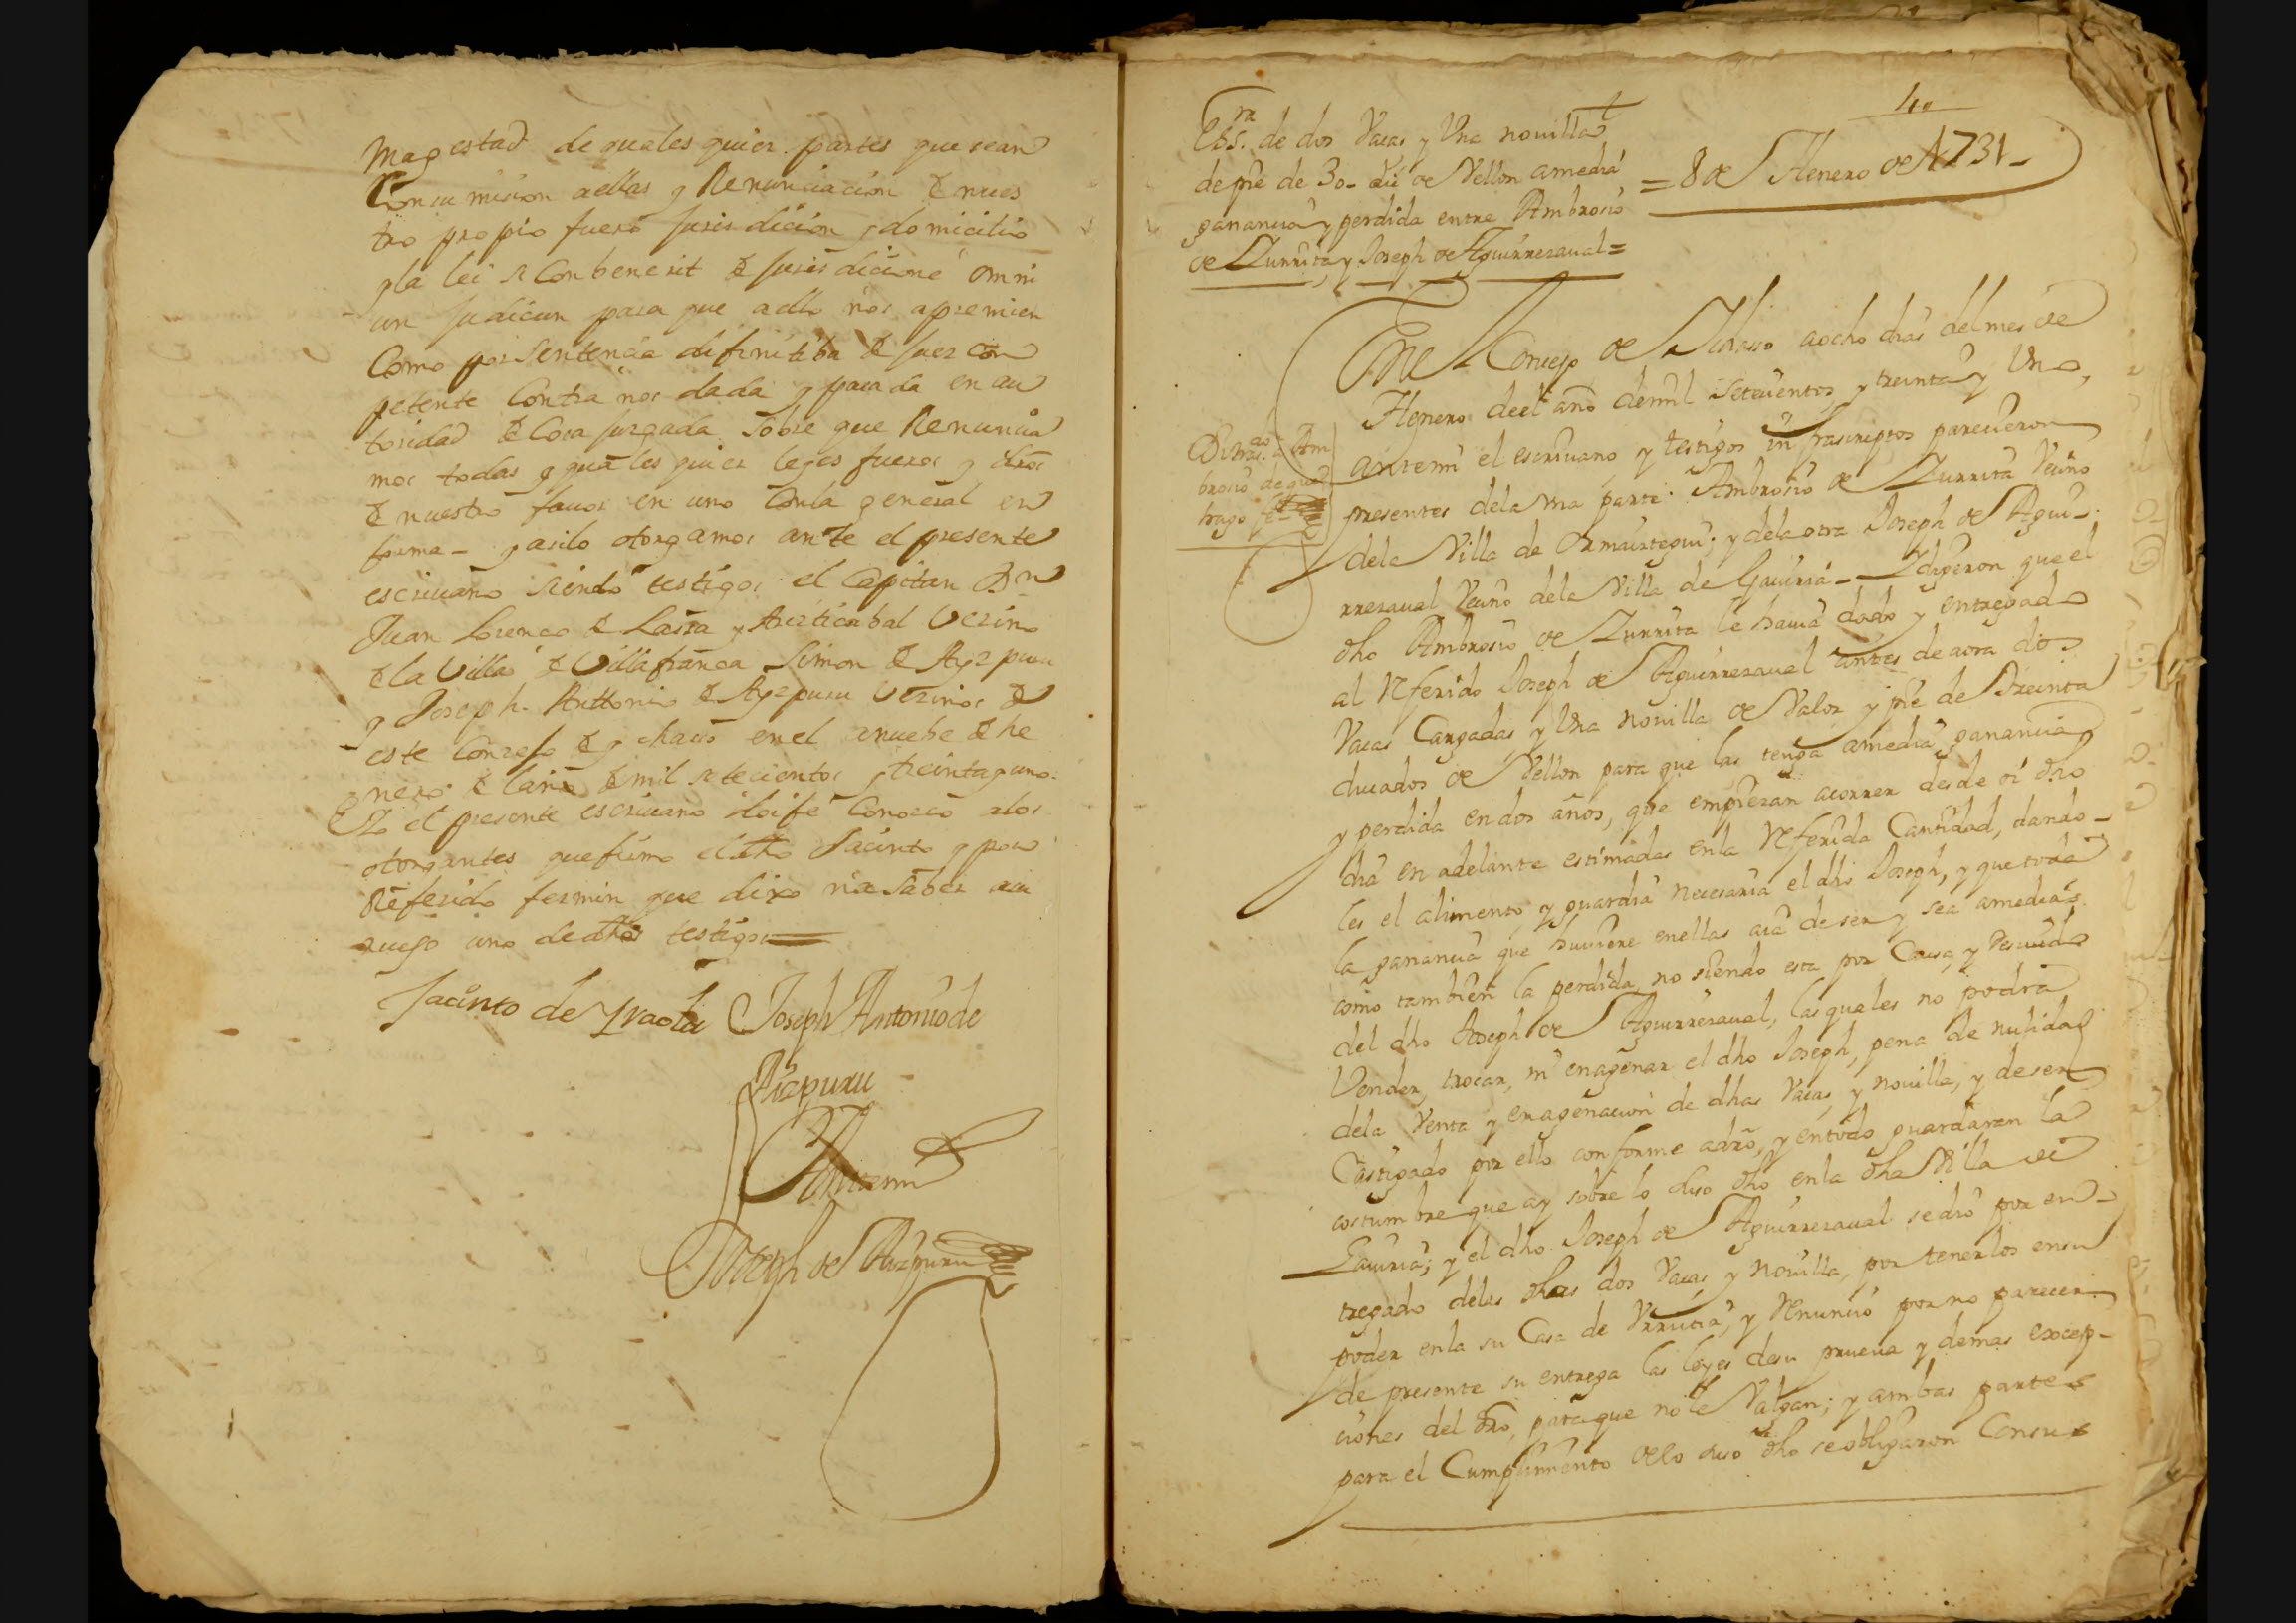 Magestad de quales quier partes que sean
Con su mision a ellas y Renunciacion de nues
tro propio fuero Jurisdicion y domicilio
y la lei si Conbenerit de Jurisdicione omni
un Judicun para que a ello nos apremien
Como por sentencia difinitiba de Juez Con
petente Contra nos dada y pasada en au
toridad de Cosa Jusgada sobre que Renuncia
mos todas y quales quier leyes fueros y dros
de nuestro fauor en uno Conla general en
forma – y asilo otorgamos ante el presente
escriuano siendo testigos el Capitan Dn
Juan Lorenco de Lasa y Aristicabal Vezino
de la Villa de Villafranca Simon de Ayzpuru
y Joseph Anttonio de Ayzpuru Vezinos de
este Conzejo de ychasso en el a nuebe de he
nero del año de mil setecientos y treinta y uno.
Yo el presente escriuano doi fe Conozco alos
otorgantes que firmo el dho Jacinto y por
Referido fermin que dixo no saber a su
ruego uno de dhos testigos
Jacinto de Yraola Joseph Antonio de
Aizpuru
Ante mi
Joseph de Aizpuru
Essra. de dos Vacas y Una nouilla
de pre de 30 – du de Vellon a media
ganancia y perdida entre Ambrosio
de Zurrita y Joseph de Aguirrezaual =
40
= 8 de Henero de 1731 –
En el Concejo de Ichasso a ocho dias del mes de
Henero de el año de mil setecientos y treinta y Uno,
ante mi el escriuano y testigos infrascriptos parecieron
presentes dela una parte Ambrosio de Zurrita Vecino
dela Villa de Ormaiztegui; y dela otra Joseph de Agui-
rrezaual Vecino dela Villa de Gauiria – Y dixeron que el
dho Ambrosio de Zurrita le hauia dado y entregado
al Referido Joseph de Aguirrezaual antes de aora dos
Vacas Cargadas y Una nouilla de Valor y pre de Treinta
ducados de Vellon para que las tenga a media ganancia
y perdida en dos años, que empiezan a correr desde oi dho
dia en adelante estimadas en la Referida Cantidad, dando-
les el alimento, y guardia necesaria el dho Joseph, y que toda
la ganancia que huuiere en ellas aia de ser y sea a medias
como tambien la perdida, no siendo esta por Causa, y descuido
del dho Joseph de Aguirrezaual, las quales no podra
Vender, trocar, ni enagenar el dho Joseph, pena de nulidad
dela Venta y enagenacion de dhas Vacas y nouilla, y de ser
Castigado por ello conforme a dro, y en todo guardaran la
costumbre que ay sobre lo suso dho en la dha Villa de
Gauiria; y el dho Joseph de Aguirrezaual se dio por en-
tregado delas dhas dos Vacas y nouilla, por tenerlos en su
poder en la su Casa de Vrrutia, y Renuncio por no parecer
de presente su entrega las leyes desu prueua y demas excep-
ciones del dro, para que no le Valgan; y ambas partes
para el Cumplimiento delo suso dho se obligaron Con sus